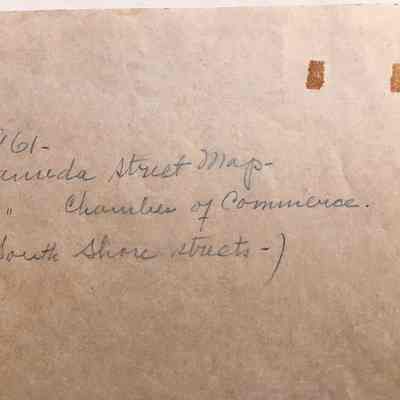 961-
ameda Street Map-
" Chamber of Commerce.
South Shore streets-)